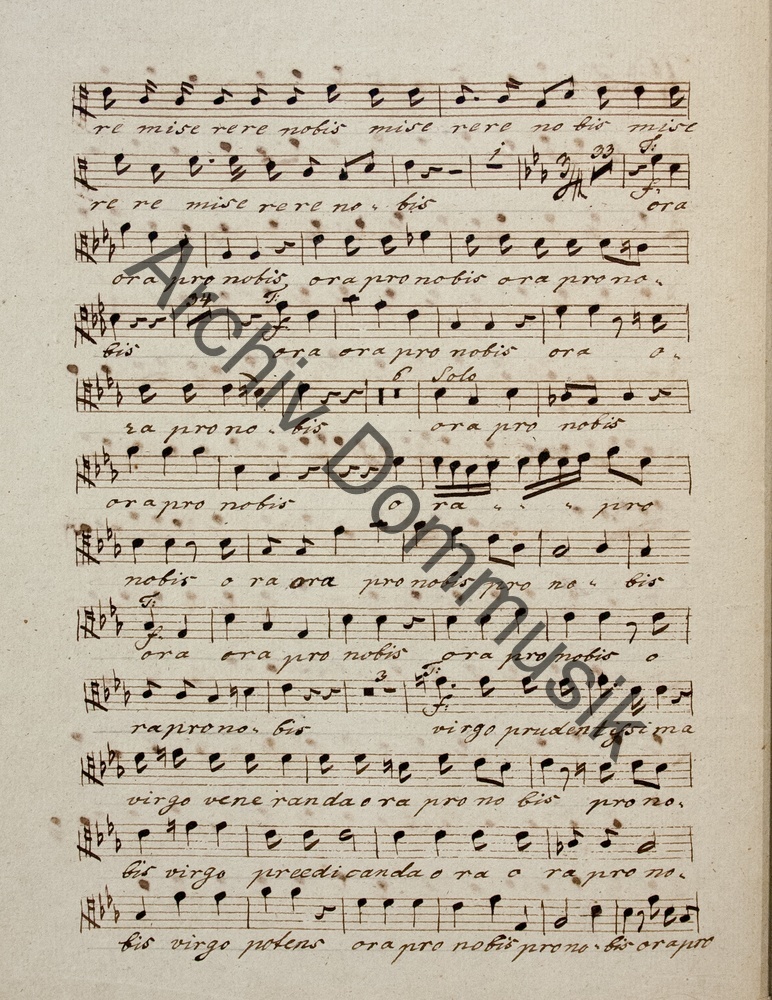 re mise rere nobis mise rere no bis mise
1 3 33 T:
f:
re re mise rere no - bis ora
ora pro nobis ora pro nobis ora pro no -
34 T:
f:
bis ora ora pro nobis ora o -
6 Solo
ra pro no - bis ora pro nobis
ora pro nobis o ra " " " pro
nobis o ra ora pro nobis pro no - bis
T:
f:
ora ora pro nobis ora pro nobis o
3 T:
f:
ra pro no - bis virgo prudentissima
virgo vene randa o ra pro no bis pro no -
bis virgo preedicanda o ra o ra pro no -
bis virgo potens ora pro nobis pro no - bis ora pro
Archiv Dommusik